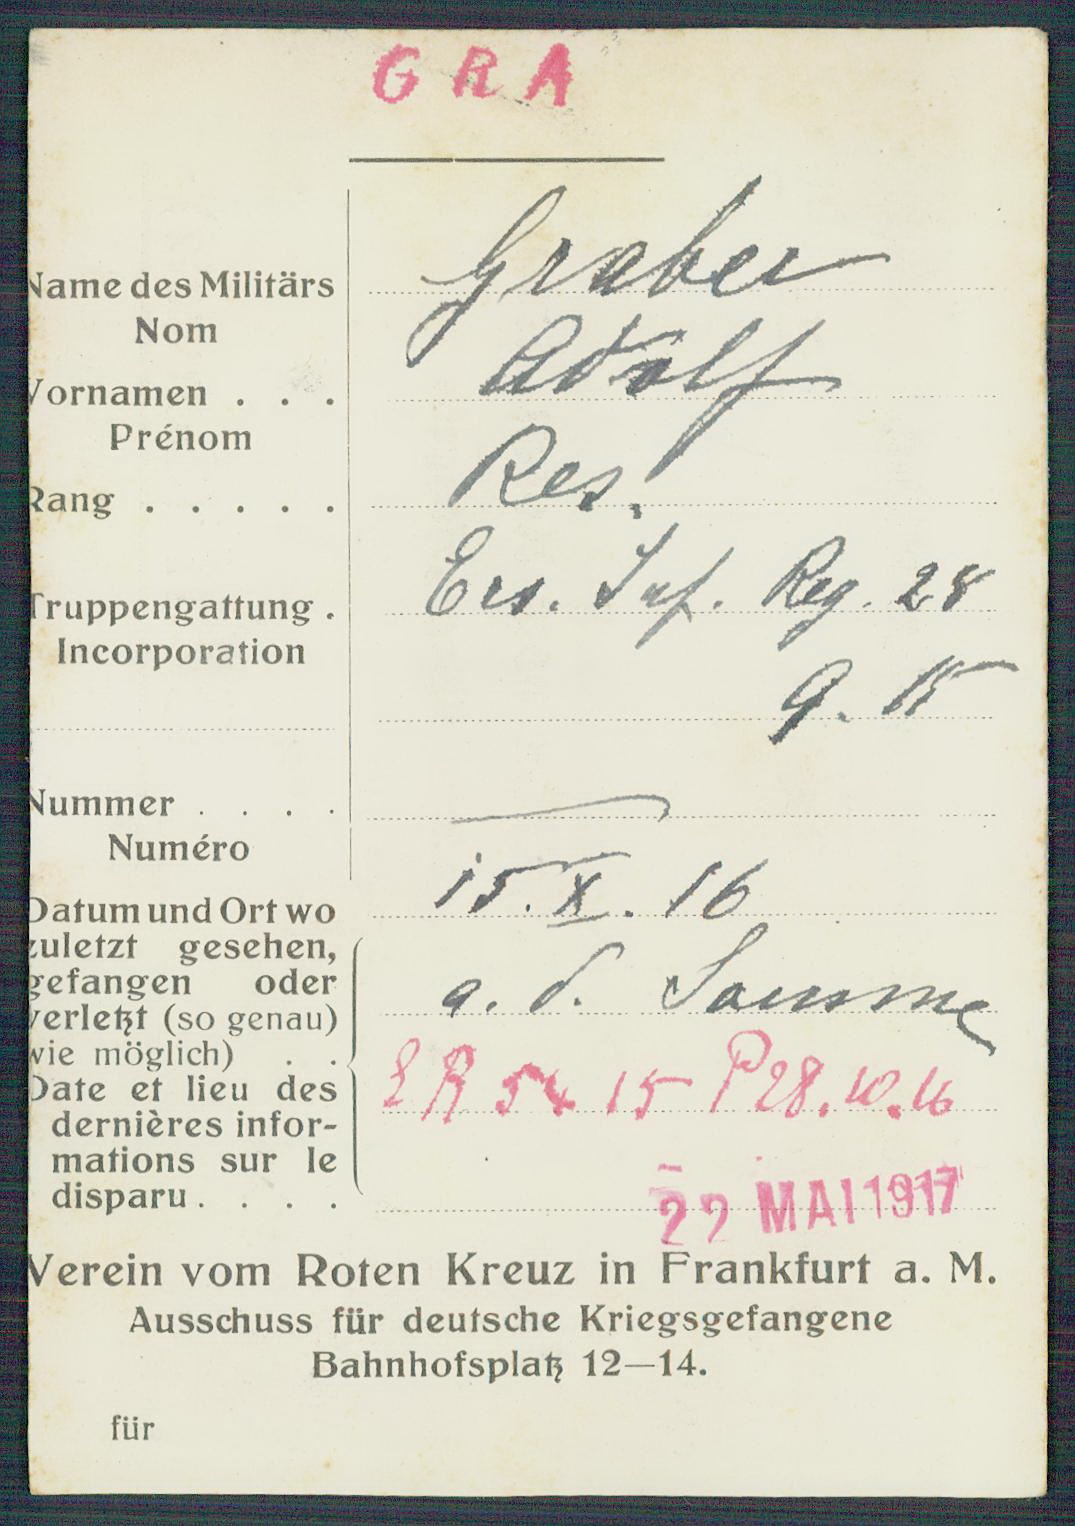 GRA
Name des Militärs Graber
Nom
Vornamen . . . Adolf
Prénom
Rang . . . . . Res.
Truppengattung . Ers. Inf. Reg. 28
Incorporation
9. 15
Nummer . . . .
Numéro
Datum und Ort wo 15. X. 16
zuletzt gesehen,
gefangen oder
verletzt (so genau) a. d. Somme
wie möglich) . .
Date et lieu des ER 54 15 P 28.10.16
dernières infor-
mations sur le
disparu . . . . 22 MAI 1917
Verein vom Roten Kreuz in Frankfurt a. M.
Ausschuss für deutsche Kriegsgefangene
Bahnhofsplatz 12—14.
für